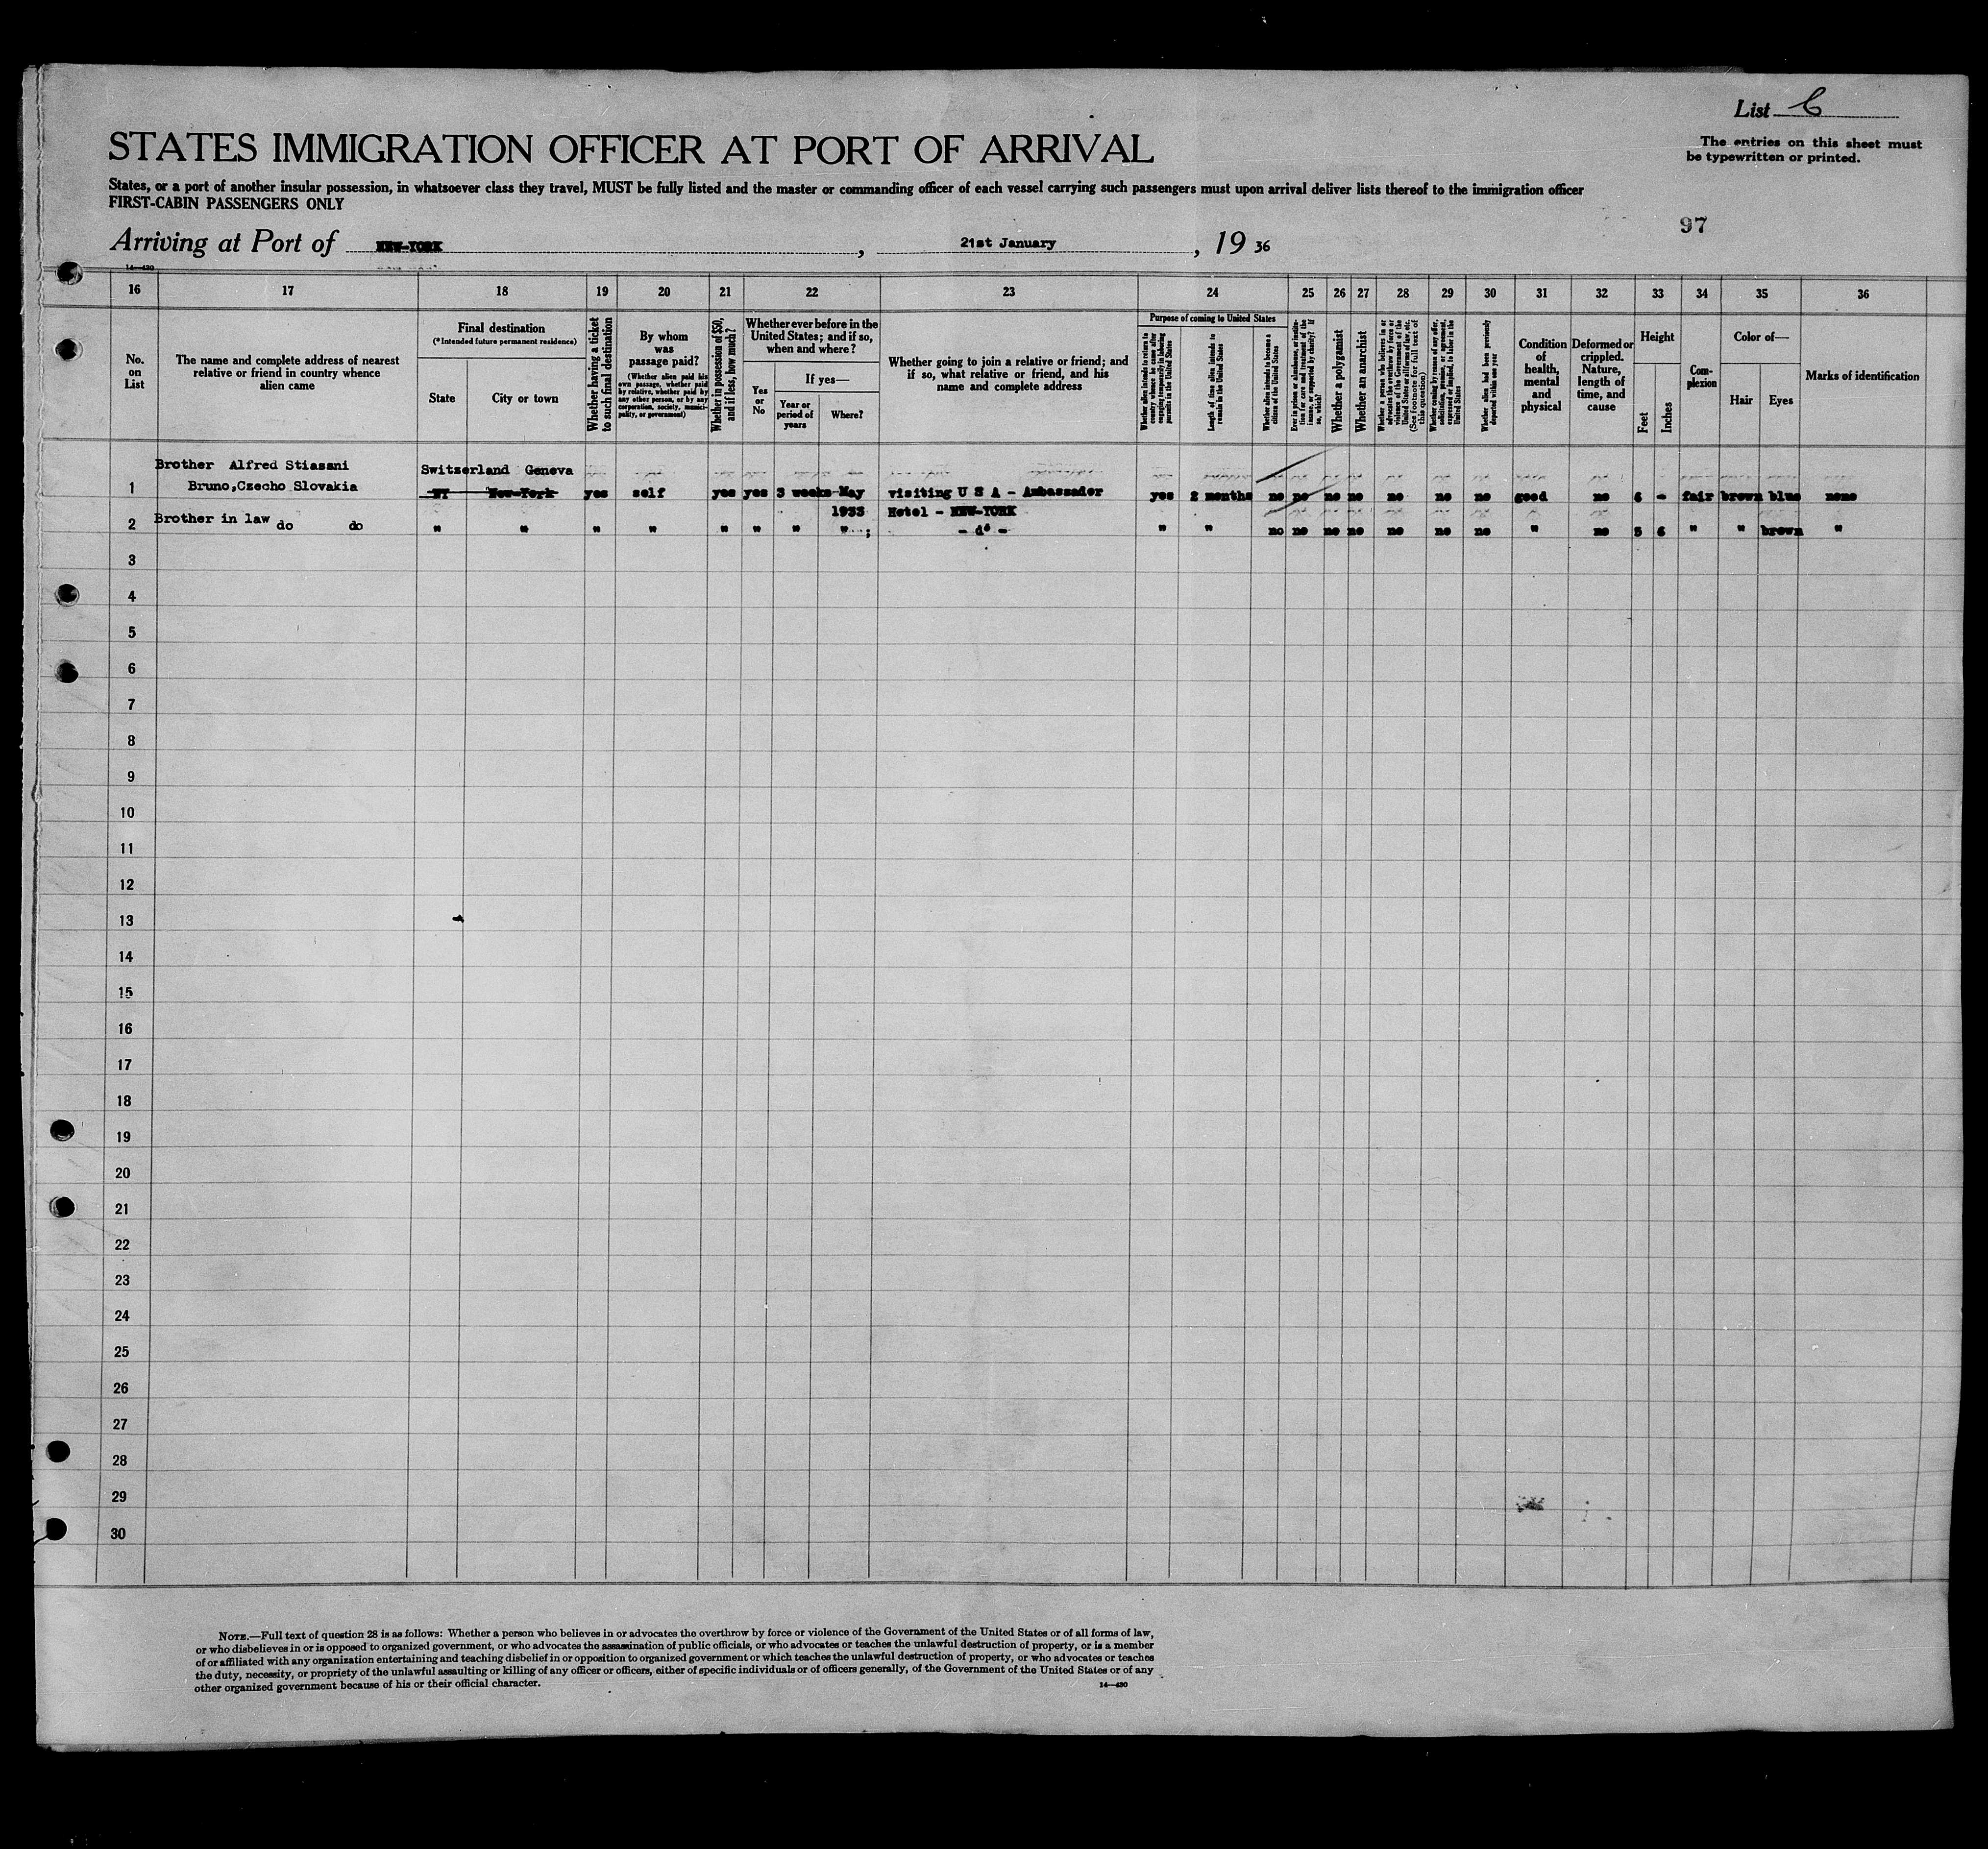 List C
The entries on this sheet must
be typewritten or printed.
STATES IMMIGRATION OFFICER AT PORT OF ARRIVAL
States, or a port of another insular possession, in whatsoever class they travel, MUST be fully listed and the master or commanding officer of each vessel carrying such passengers must upon arrival deliver lists thereof to the immigration officer
FIRST-CABIN PASSENGERS ONLY
97
Arriving at Port of NEW-YORK, 21st January, 19 36
14—430
16 17 18 19 20 21 22 23 24 25 26 27 28 29 30 31 32 33 34 35 36
No.
on
List
The name and complete address of nearest
relative or friend in country whence
alien came
Final destination
(*Intended future permanent residence)
State City or town
Whether having a ticket
to such final destination
By whom
was
passage paid?
(Whether alien paid his
own passage, whether paid
by relative, whether paid by
any other person, or by any
corporation, society, munici-
pality, or government)
Whether in possession of $50,
and if less, how much?
Whether ever before in the
United States; and if so,
when and where?
Yes
or
No
If yes—
Year or
period of
years
Where?
Whether going to join a relative or friend; and
if so, what relative or friend, and his
name and complete address
Purpose of coming to United States
Whether alien intends to return to
country whence he came after
engaging temporarily in laboring
pursuits in the United States
Length of time alien intends to
remain in the United States
Whether alien intends to become a
citizen of the United States
Ever in prison or almshouse, or institu-
tion for care and treatment of the
insane, or supported by charity? If
so, which?
Whether a polygamist
Whether an anarchist
Whether a person who believes in or
advocates the overthrow by force or
violence of the Government of the
United States or all forms of law, etc.
(See footnote for full text of
this question)
Whether coming by reason of any offer,
solicitation, promise, or agreement,
expressed or implied, to labor in the
United States
Whether alien had been previously
deported within one year
Condition
of
health,
mental
and
physical
Deformed or
crippled.
Nature,
length of
time, and
cause
Height
Feet Inches
Com-
plexion
Color of—
Hair Eyes
Marks of identification
Brother Alfred Stiassni Switzerland Geneva
1 Bruno,Czecho Slovakia NY New-York yes self yes yes 3 weeks-May visiting U S A - Ambassador yes 2 months no no no no no no no good no 6 - fair brown blue none
1933 Hotel - NEW-YORK
2 Brother in law do do " " " " " " " " - d° - " " no no no no no no no " no 5 6 " " brown "
3
4
5
6
7
8
9
10
11
12
13
14
15
16
17
18
19
20
21
22
23
24
25
26
27
28
29
30
NOTE.—Full text of question 28 is as follows: Whether a person who believes in or advocates the overthrow by force or violence of the Government of the United States or of all forms of law,
or who disbelieves in or is opposed to organized government, or who advocates the assassination of public officials, or who advocates or teaches the unlawful destruction of property, or is a member
of or affiliated with any organization entertaining and teaching disbelief in or opposition to organized government or which teaches the unlawful destruction of property, or who advocates or teaches
the duty, necessity, or propriety of the unlawful assaulting or killing of any officer or officers, either of specific individuals or of officers generally, of the Government of the United States or of any
other organized government because of his or their official character.
14—430